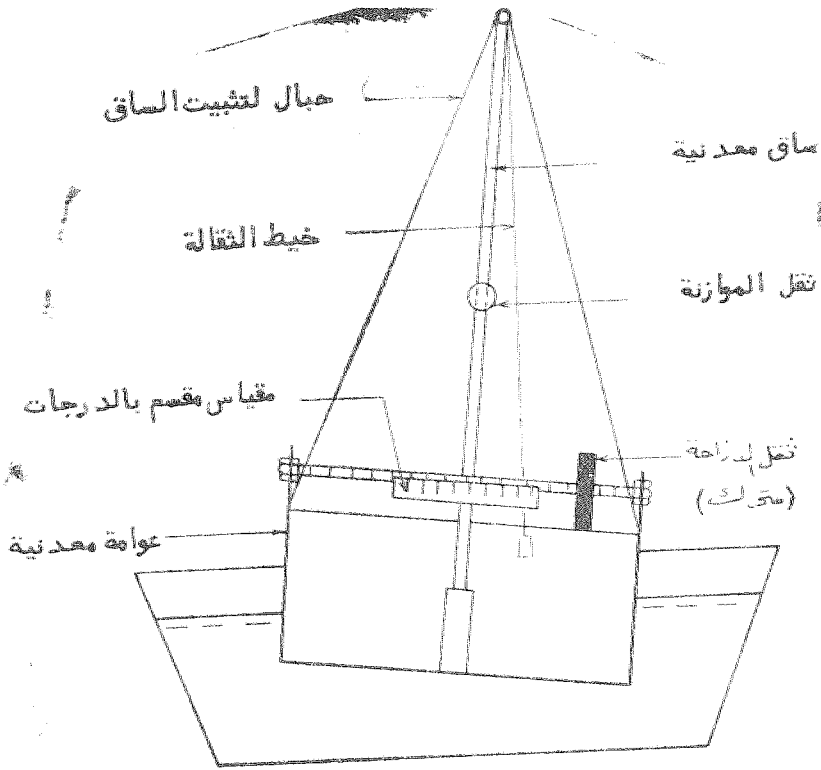 حبال لتثبيت الساق
ساق معدنية
خيط الثقالة
ثقل الموازنة
مقياس مقسم بالدرجات
ثقل الازاحة
(متحرك)
عوامة معدنية